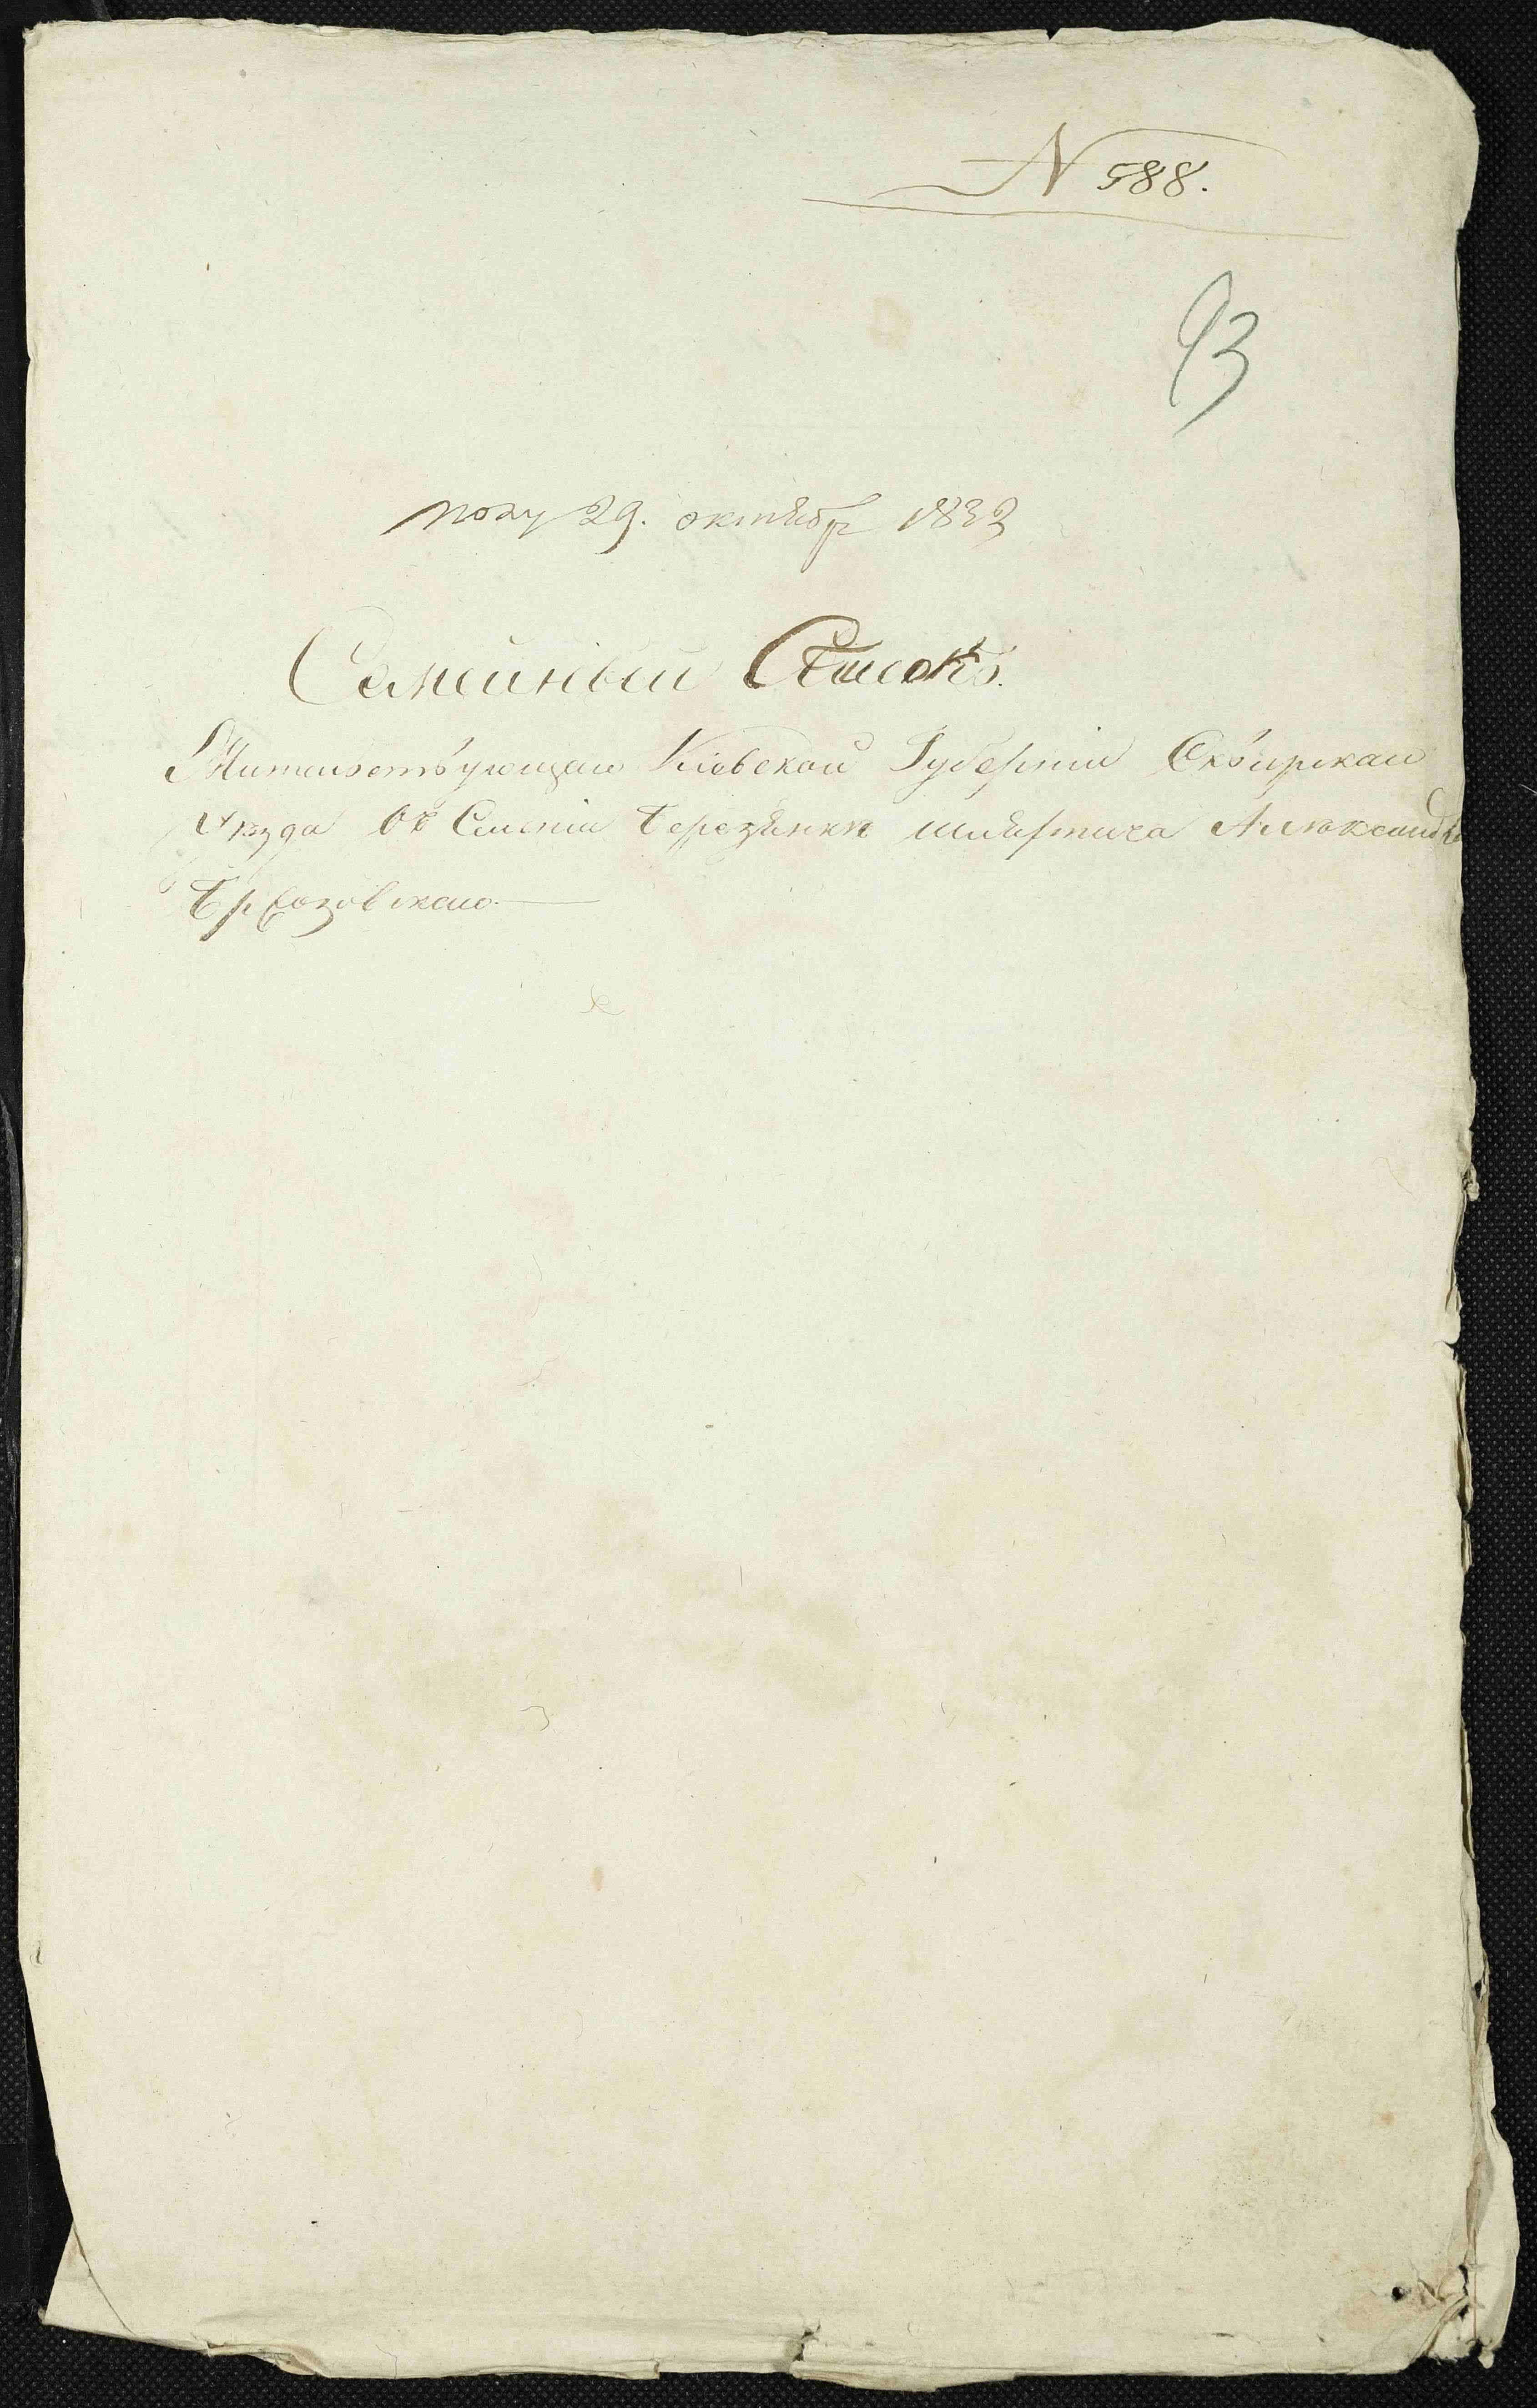 N 588.
93
полу 29. октября 1832
Семейный Списокъ.
Жительствующаго Кіевской Губерніи Сквирскаго
уезда въ Селеніи Березянки шляхтича Александра
Брзозовскаго